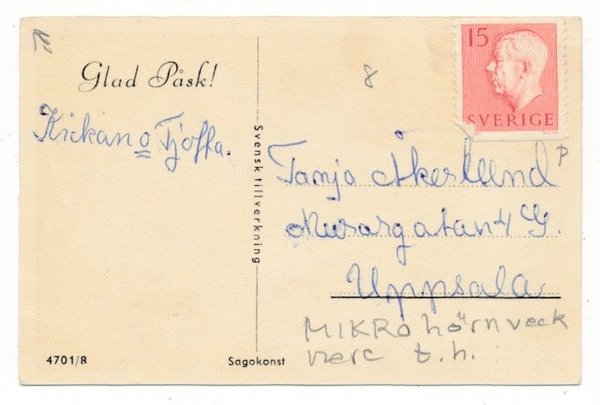 Glad Påsk!
8
15
SVERIGE
Kickan o Tjoffa.
Svensk tillverkning
P
Tanja Åkerlund
Murargatan 4 G.
Uppsala
MIKRO hörnveck
t.h.
4701/8
Sagokonst